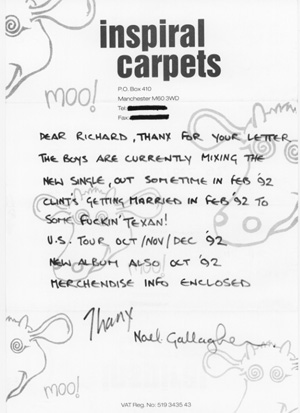 inspiral
carpets
P.O. Box 410
Manchester M60 3WD
Tel:
Fax:
moo!
DEAR RICHARD, THANX FOR YOUR LETTER
THE BOYS ARE CURRENTLY MIXING THE
NEW SINGLE, OUT SOMETIME IN FEB '92
CLINT'S GETTING MARRIED IN FEB '92 TO
SOME FUCKIN' TEXAN!
U.S. TOUR OCT/NOV/DEC '92
NEW ALBUM ALSO OCT '92
MERCHENDISE INFO ENCLOSED
moo!
Thanx
Noel Gallagher
moo!
VAT Reg. No: 519 3435 43